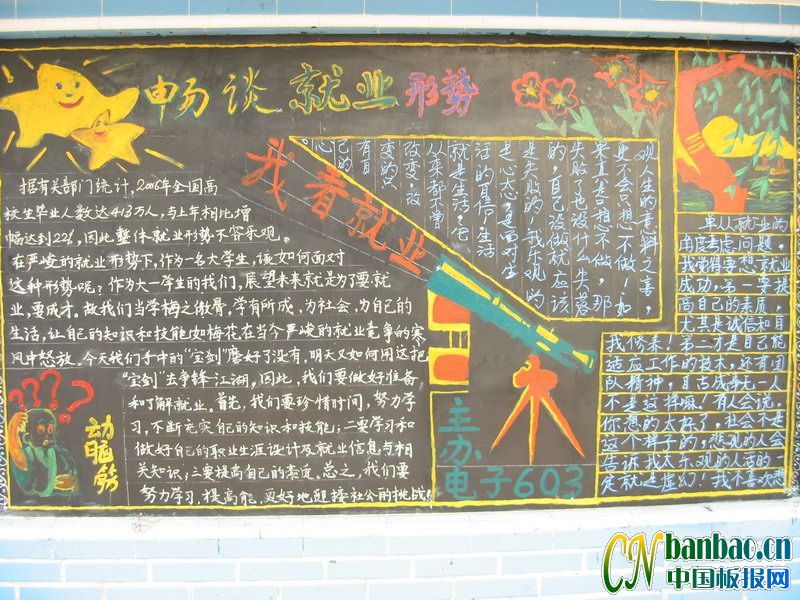 畅谈就业形势
我看就业
据有关部门统计，2006年全国高
校生毕业人数达413万人，与上年相比增
幅达到22%，因此整体就业形势不容乐观。
在严峻的就业形势下，作为一名大学生，该如何面对
这种形势呢？作为大一学生的我们，展望未来就是为了要就
业，要成才。故我们当学梅之傲骨，学有所成，为社会，为自己的
生活，让自己的知识和技能如梅花在当今严峻的就业竞争的寒
风中怒放。今天我们手中的“宝剑”磨好了没有，明天又如何用这把
“宝剑”去争锋江湖。因此，我们要做好准备
和了解就业。首先，我们要珍惜时间，努力学
习，不断充实自己的知识和技能；二要学习和
做好自己的职业生涯设计及就业信息与相
关知识；三要提高自己的素质。总之，我们要
努力学习，提高能，更好地迎接社会的挑战！
动脑筋
观人生的意料之害，
更不会只想不做！如
果真是只想不做，那
失败了也没什么失落
的，自己没做就应该
是失败的。我乐观的
是心态，是面对生
活的自信。生活
就是生活，它
从来都不曾
改变，改
变的只
有自
己的
心
单从就业的
角度考虑问题，
我觉得要想就业
成功，第一要提
高自己的素质，
尤其是诚信和自
我修养！第二才是自己能
适应工作的技术，还有团
队精神，自古成事无一人
不是这样嘛！有人会说，
你想的太标了，社会不是
这个样子的，悲观的人会
告诉我太乐观的人活的一
定就是虚幻！我不喜欢悲
主办
电子603
CN banbao.cn
中国板报网